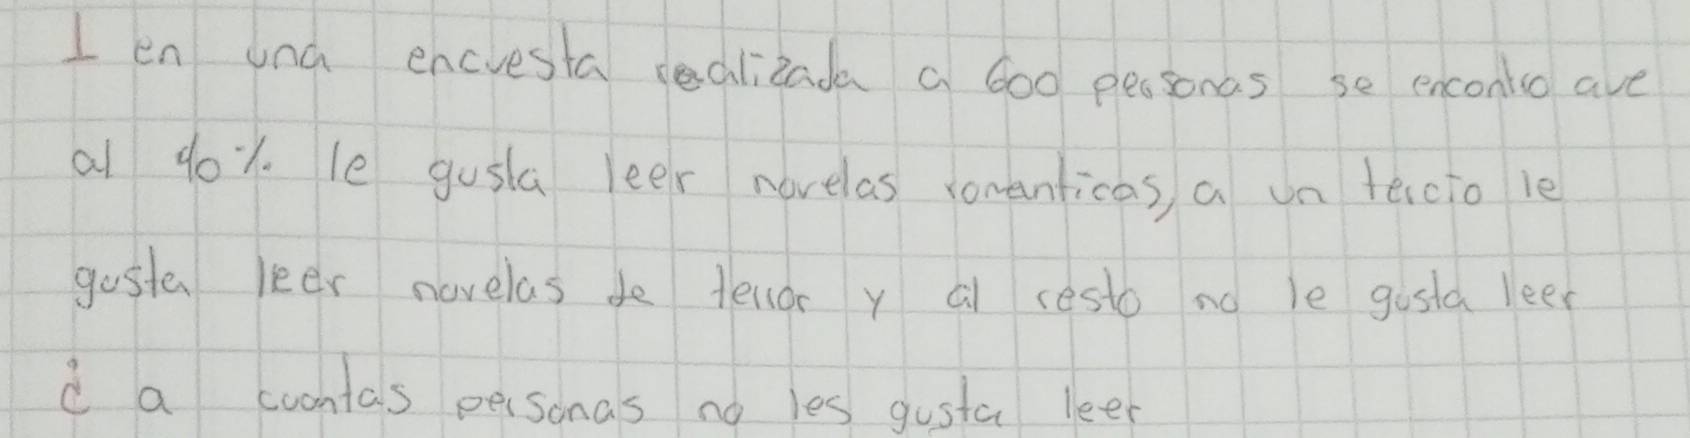 1 en una encuesta realizada a 600 personas se encontro que
al 40% le gusta leer novelas romanticas, a un tercio le
gusta leer novelas de terror y al resto no le gusta leer
¿ a cuantas personas no les gusta leer